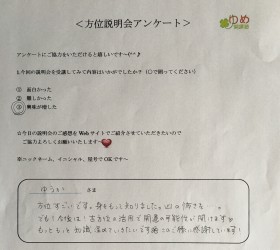 <方位説明会アンケート>
ゆめ
アンケートにご協力をいただけると嬉しいです～(^^♪
1.今回の説明会を受講してみて内容はいかがでしたか? (○で囲ってください)
① 面白かった
② 難しかった
③ 興味が増した
☆今日の説明会のご感想を Web サイトでご紹介させていただきたいので
ご協力よろしくお願いいたします
※ニックネーム、イニシャル、屋号で OK です～
ゆうこ さま
方位すごいです。身をもって知りました。凶の怖さも…。
でも!今後は!吉方位の活用で開運の可能性が開けます☆
もっともっと知識深めていきたいです
感謝しています!